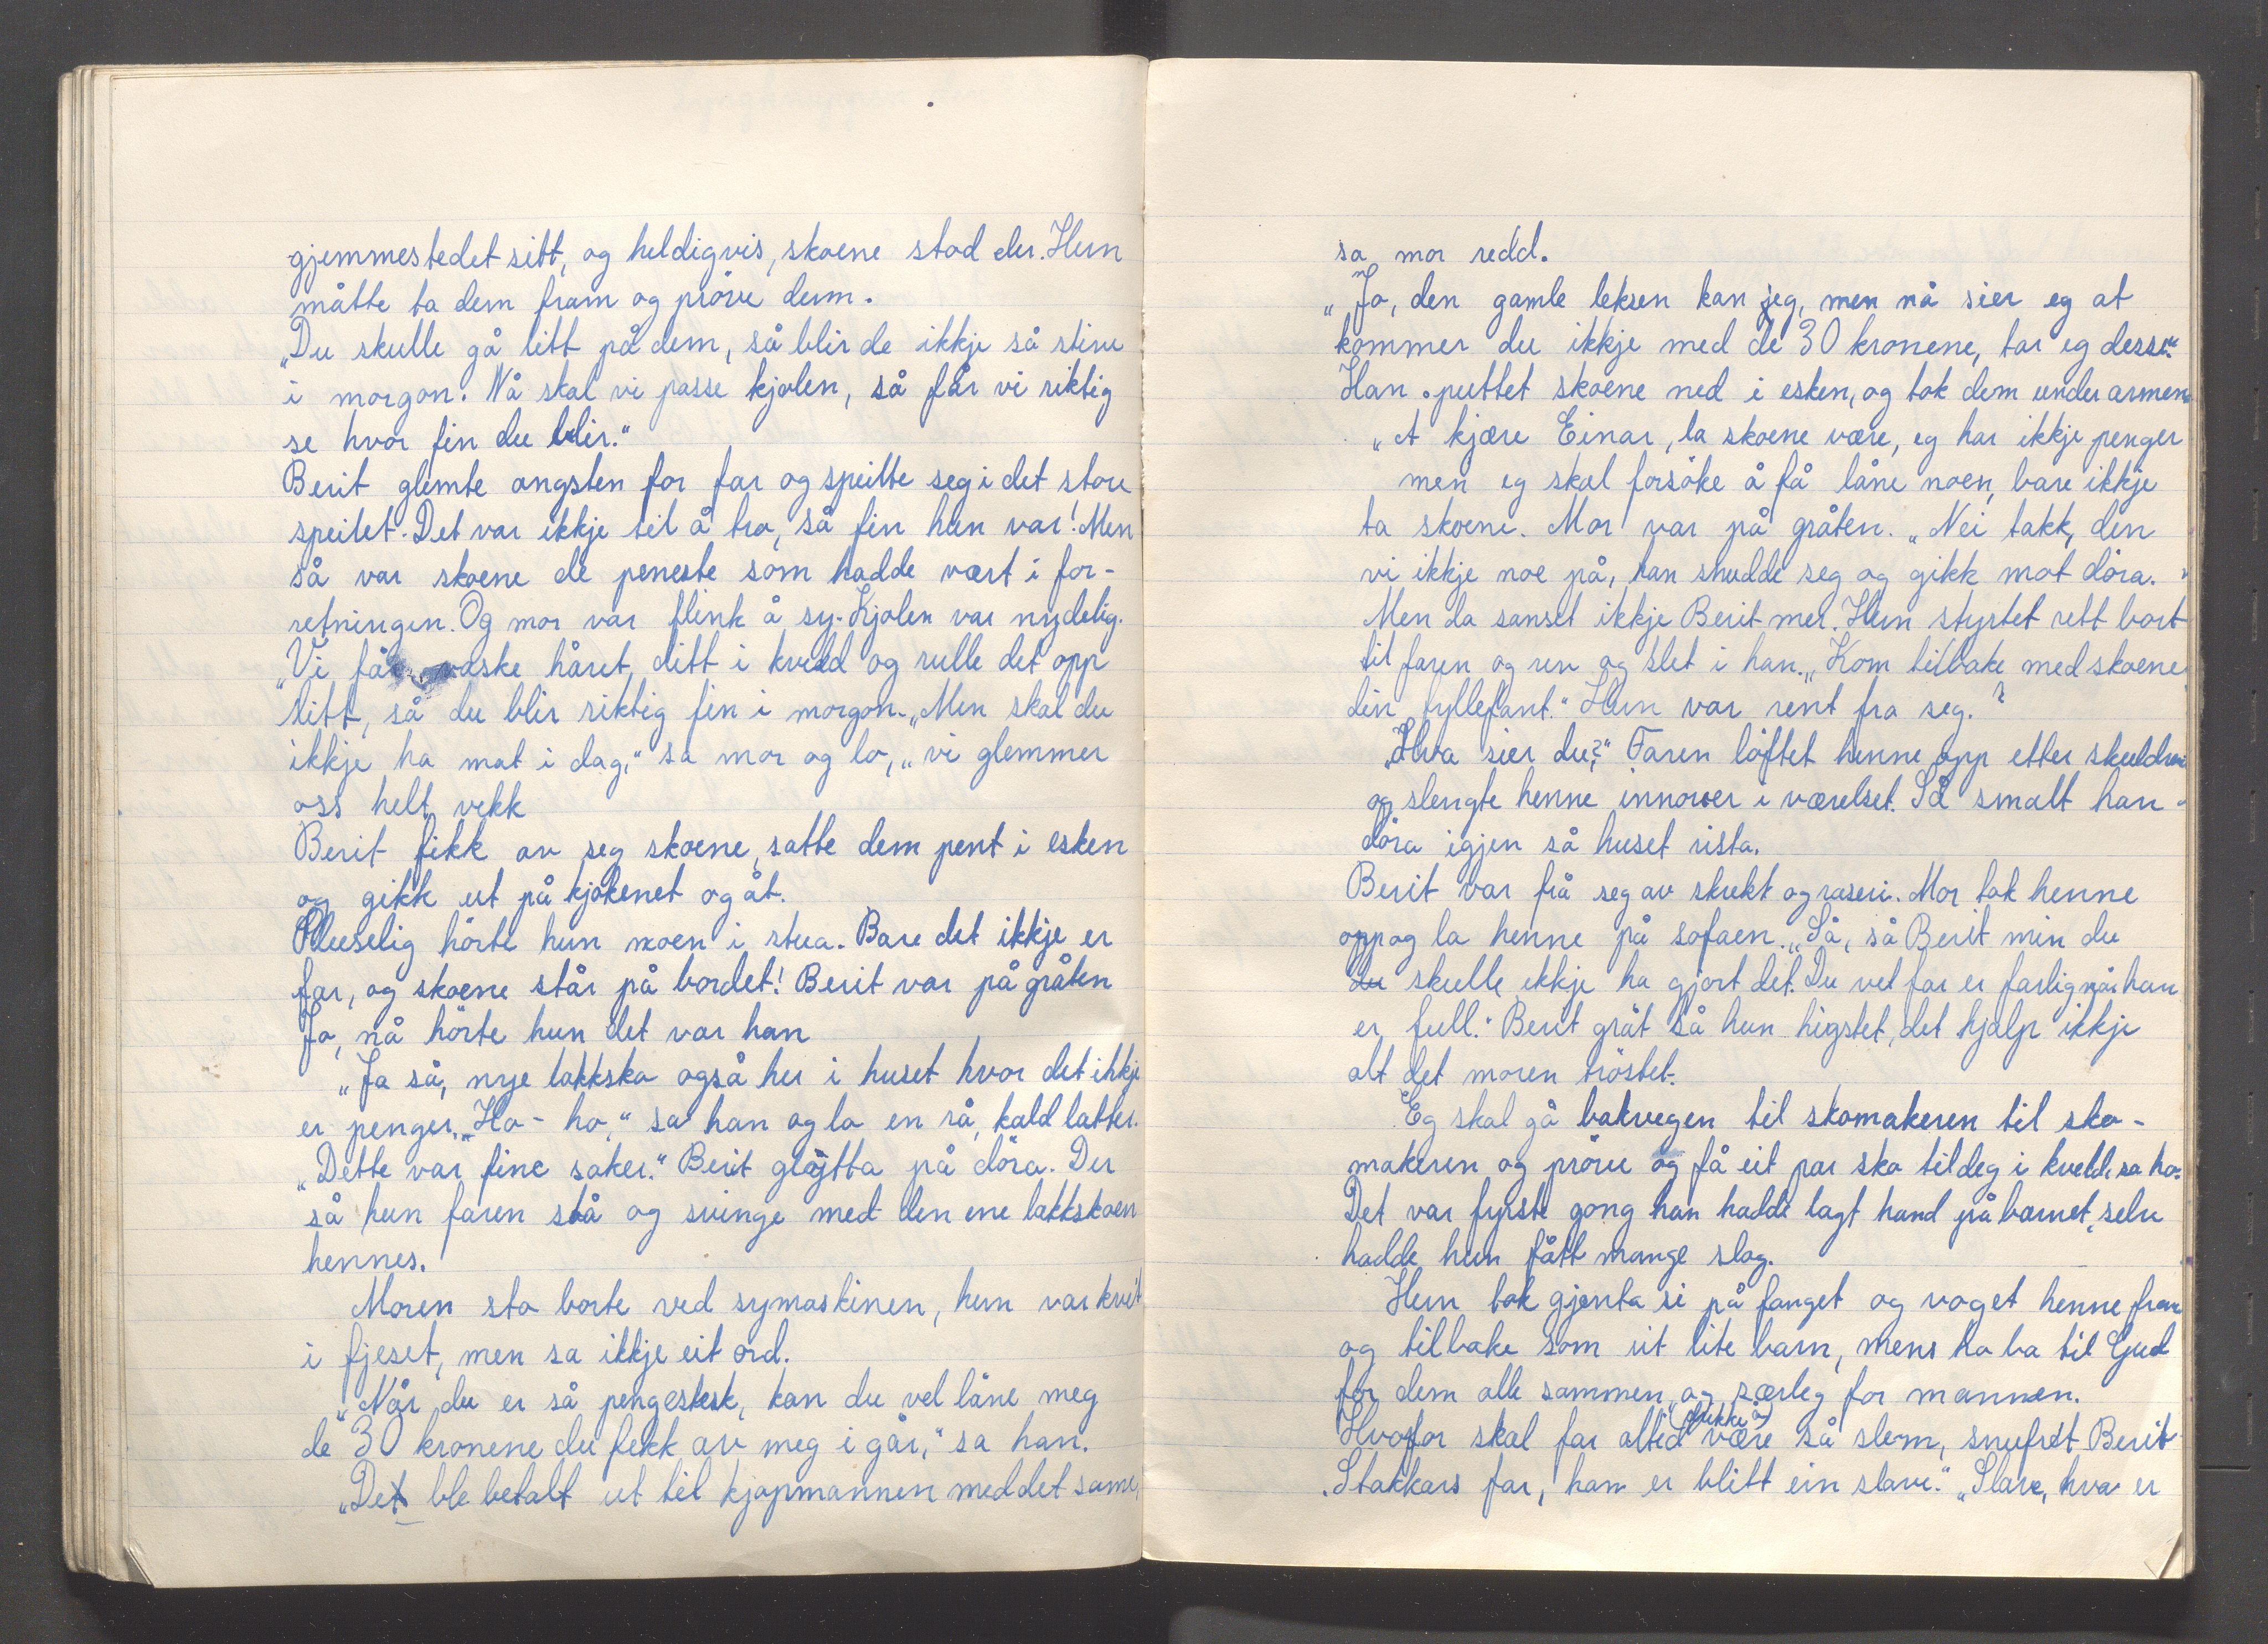 gjemmestedet sitt, og heldigvis, skoene stod der. Hun
måtte ta dem fram og pröve dem.
„Du skulle gå litt på dem, så blir de ikkje så stive
i morgon. Nå skal vi passe kjolen, så får vi riktig
se hvor fin du blir.“
Berit glemte angsten for far og speilte seg i det store
speilet. Det var ikkje til å tro, så fin hun var! Men
så var skoene de peneste som hadde vært i for-
retningen. Og mor var flink å sy. Kjolen var nydelig.
„Vi får vaske håret ditt i kveld og rulle det opp
litt, så du blir riktig fin i morgon. „Men skal du
ikkje ha mat i dag,“ sa mor og lo, „vi glemmer
oss helt vekk
Berit fikk av seg skoene, satte dem pent i esken
og gikk ut på kjökenet og åt.
Pluselig hörte hun noen i stua. Bare det ikkje er
far, og skoene står på bordet! Berit var på gråten
Jo, nå hörte hun det var han
„Ja så, nye lakksko også her i huset hvor det ikkje
er penger. „Ho-ho,“ sa han og lo en rå, kald latter.
„Dette var fine saker.“ Berit gløytta på döra. Der
så hun faren stå og svinge med den ene lakkskoen
hennes.
Moren sto borte ved symaskinen, hun var kvit
i fjeset, men sa ikkje eit ord.
„Når du er så pengesterk, kan du vel låne meg
de 30 kronene du fekk av meg i går,“ sa han.
„Det ble betalt ut til kjøpmannen med det same,
sa mor redd.
„Jo, den gamle leksen kan jeg, men nå sier eg at
kommer du ikkje med de 30 kronene, tar eg desse.“
Han puttet skoene ned i esken, og tok dem under armen
„Å kjære Einar, la skoene være, eg har ikkje penger
men eg skal forsöke å få låne noen, bare ikkje
ta skoene. Mor var på gråten. „Nei takk, den
vi ikkje noe på, han snudde seg og gikk mot döra.
Men da sanset ikkje Berit mer. Hun styrtet rett bort
til faren og rev og slet i han. „Kom tilbake med skoene
din fyllefant.“ Hun var rent fra seg.
„Hva sier du?“ Faren löftet henne opp etter skuldrene
og slengte henne innover i værelset. Så smalt han
döra igjen så huset rista.
Berit var frå seg av skrekk og raseri. Mor tok henne
opp og la henne på sofaen. „Så, så Berit min du
du skulle ikkje ha gjort det. Du vet far er farlig når han
er full.“ Berit gråt så hun higstet, det hjalp ikkje
alt det moren tröstet.
Eg skal gå bakvegen til skomakeren til sko-
makeren og pröve og få eit par sko til deg i kveld sa ho.
Det var fyrste gong han hadde lagt hand på barnet, selv
hadde hun fått mange slag.
Hun tok gjenta si på fanget og voget henne fram
og tilbake som eit lite barn, mens ho ba til Gud
for dem alle sammen, og særleg for mannen.
Hvorfor skal far alltid (drikke å) være så slem, snufset Berit
„Stakkars far, han er blitt ein slave.“ „Slave, hva er